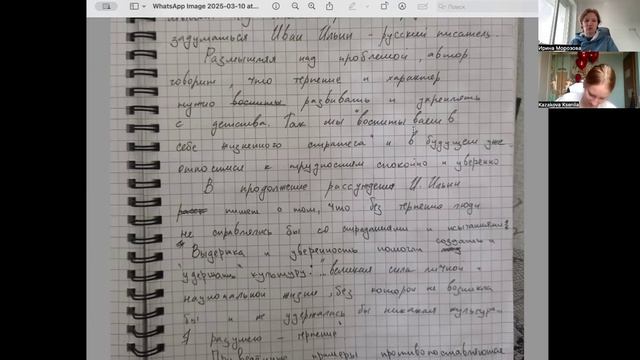 WhatsApp Image 2025-03-10 at...
задуматься Иван Ильин - русский писатель.
Размышляя над проблемой, автор
говорит, что терпение и характер
нужно развивать и укреплять
с детства. Так мы "воспитываем в
себе жизненного стратега" и в будущем уже
относимся к трудностям спокойно и уверенно
В продолжение рассуждения И. Ильин
пишет о том, что без терпения люди
не справлялись бы со страданиями и испытаниями.
Выдержка и уверенность помогли создать и
"удержать" культуру: "...великая сила личной и
национальной жизни, без которой не возникла
бы и не удержалась бы никакая культура.
Я разумею - терпение"
примеры противопоставляются
Ирина Морозова
Kazakova Kseniia